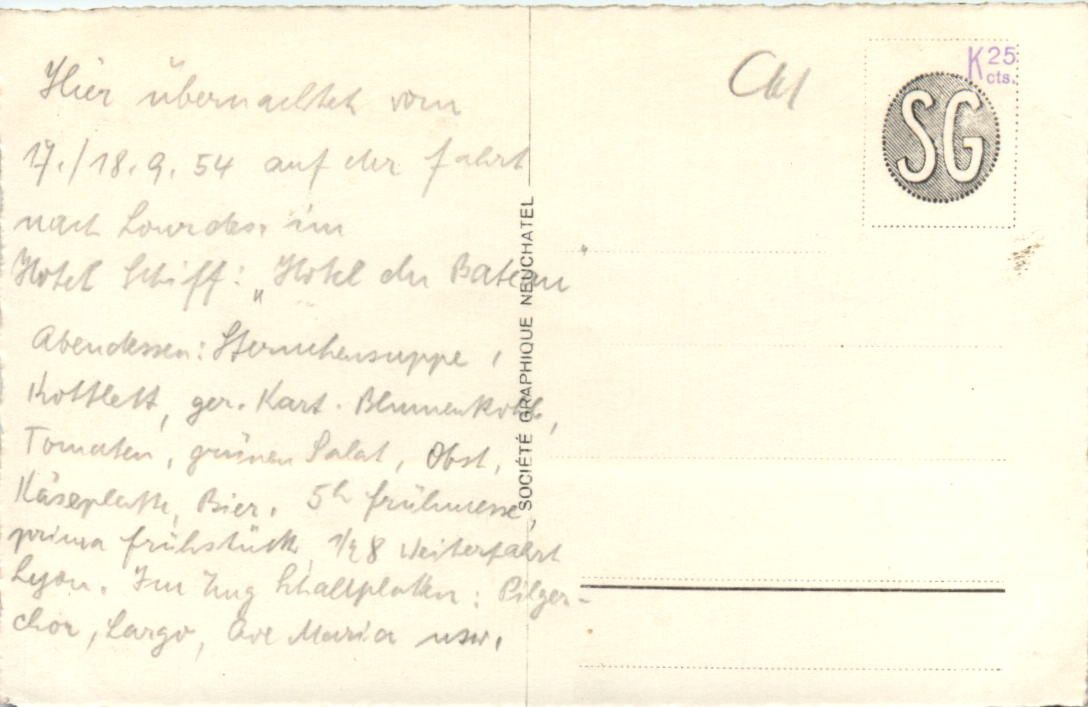 Hier übernachtet vom
17./18.9.54 auf der Fahrt
nach Lourdes. im
Hotel Schiff: „Hotel du Bateau
Abendessen: Sternchensuppe,
Kottlett, ger. Kart. Blumenkohl,
Tomaten, grünen Salat, Obst,
Käseplatte, Bier. 5h Frühmesse,
prima Frühstück, 1/2 8 Weiterfahrt
Lyon. Im Zug Schallplatten: Pilger-
chor, Largo, Ave Maria usw.
SOCIÉTÉ GRAPHIQUE NEUCHATEL
CH
K 25
cts.
SG